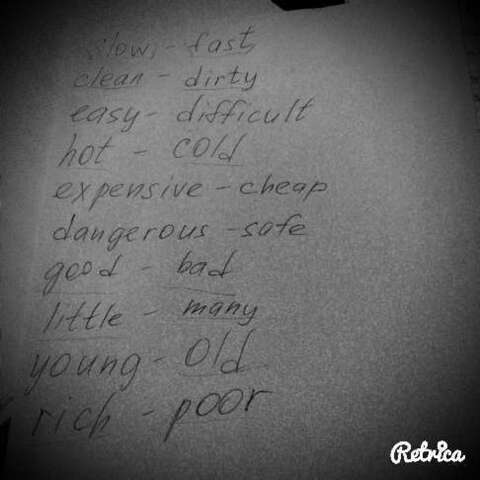 slow, - fast,
clean - dirty
easy - difficult
hot - cold
expensive - cheap
dangerous - safe
good - bad
little - many
young - old
rich - poor
Retrica